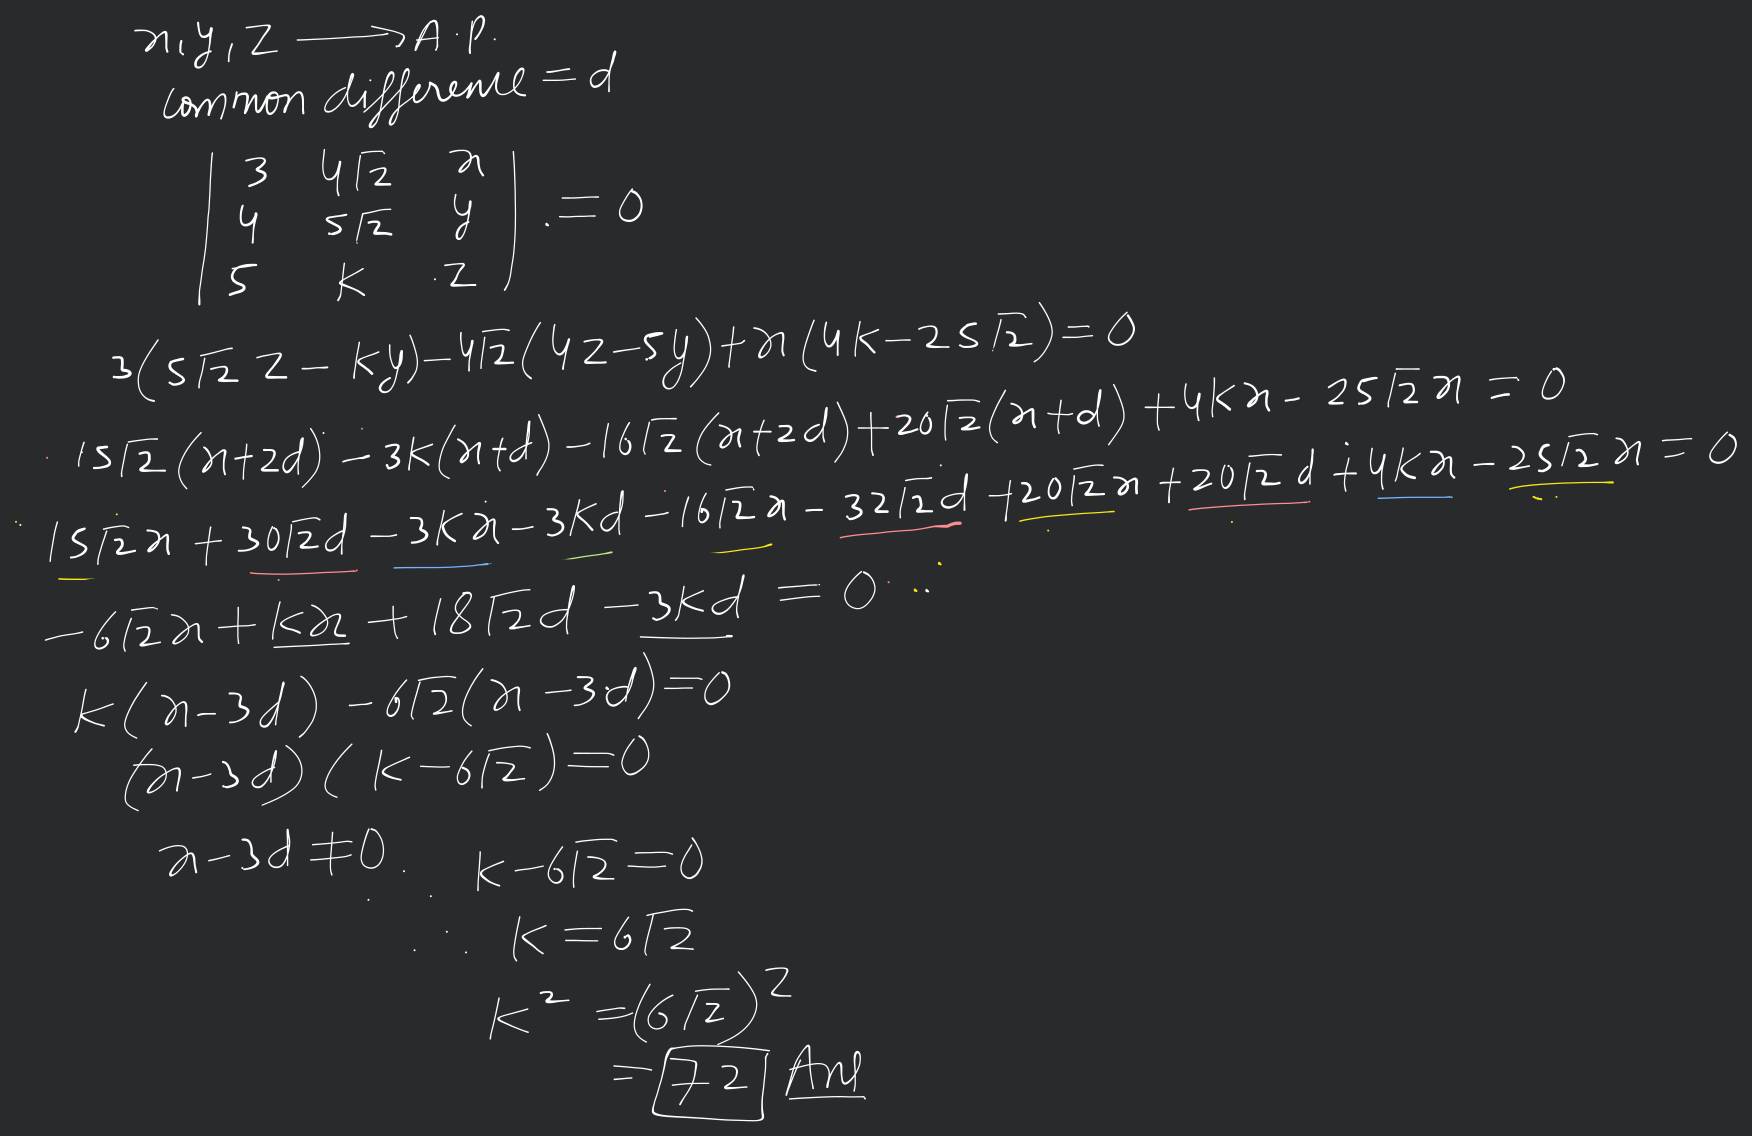 x, y, z ⟶ A.P.
common difference = d
| 3 4√2 x |
| 4 5√2 y | = 0
| 5 k z |
3(5√2 z - ky) - 4√2(4z - 5y) + x(4k - 25√2) = 0
15√2(x+2d) - 3k(x+d) - 16√2(x+2d) + 20√2(x+d) + 4kx - 25√2x = 0
15√2x + 30√2d - 3kx - 3kd - 16√2x - 32√2d + 20√2x + 20√2d + 4kx - 25√2x = 0
-6√2x + kx + 18√2d - 3kd = 0
k(x-3d) - 6√2(x-3d) = 0
(x-3d)(k-6√2) = 0
x-3d ≠ 0. k-6√2 = 0
k = 6√2
k² = (6√2)²
= 72 Ans